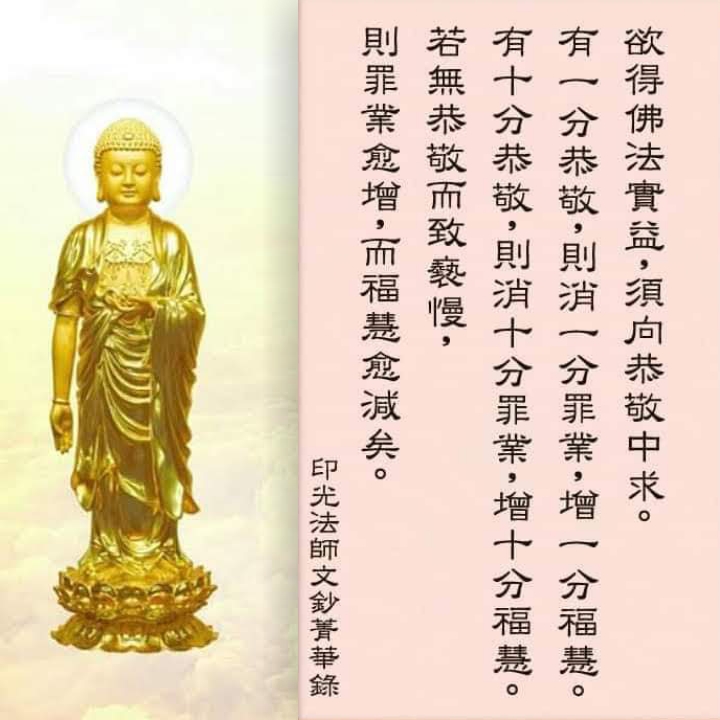 欲得佛法實益，須向恭敬中求。
有一分恭敬，則消一分罪業，增一分福慧。
有十分恭敬，則消十分罪業，增十分福慧。
若無恭敬而致褻慢，
則罪業愈增，而福慧愈減矣。
印光法師文鈔菁華錄